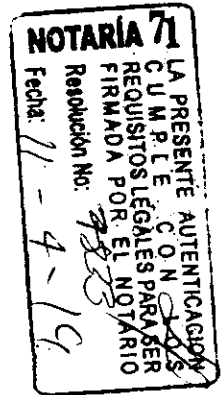 NOTARÍA 71
LA PRESENTE AUTENTICACION
CUMPLE CON LOS
REQUISITOS LEGALES PARA SER
FIRMADA POR EL NOTARIO
Resolución No:
Fecha: 11 - 4 - 19